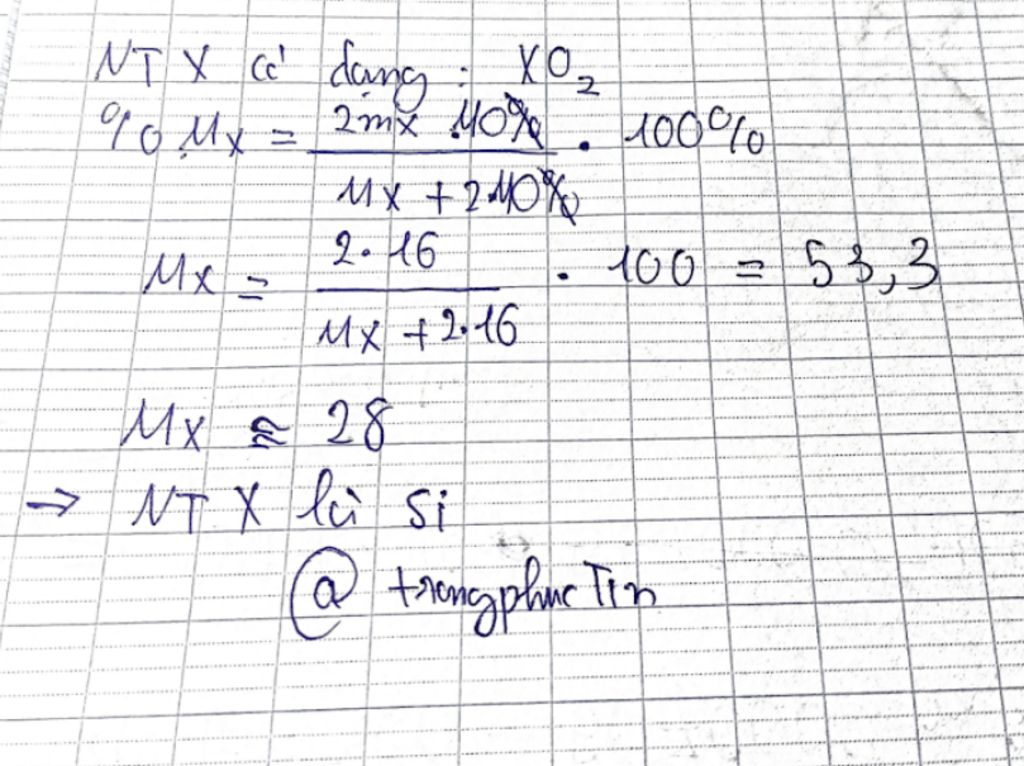 NT X có dạng : XO2
% Mx = 2mx MO% / Mx + 2.MO% . 100%
Mx = 2.16 / Mx + 2.16 . 100 = 53,3
Mx ≈ 28
⇒ NT X là Si
@ trongphuc Tin